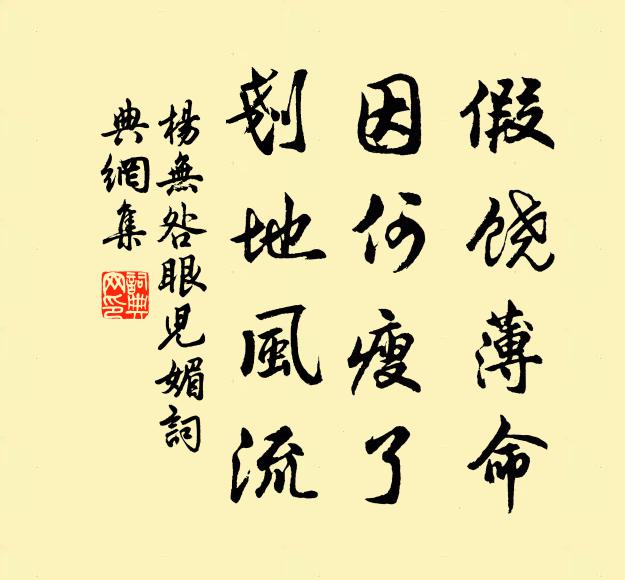 假饶薄命
因何瘦了
刬地風流
楊無咎眼兒媚詞
典網集
詞典網印